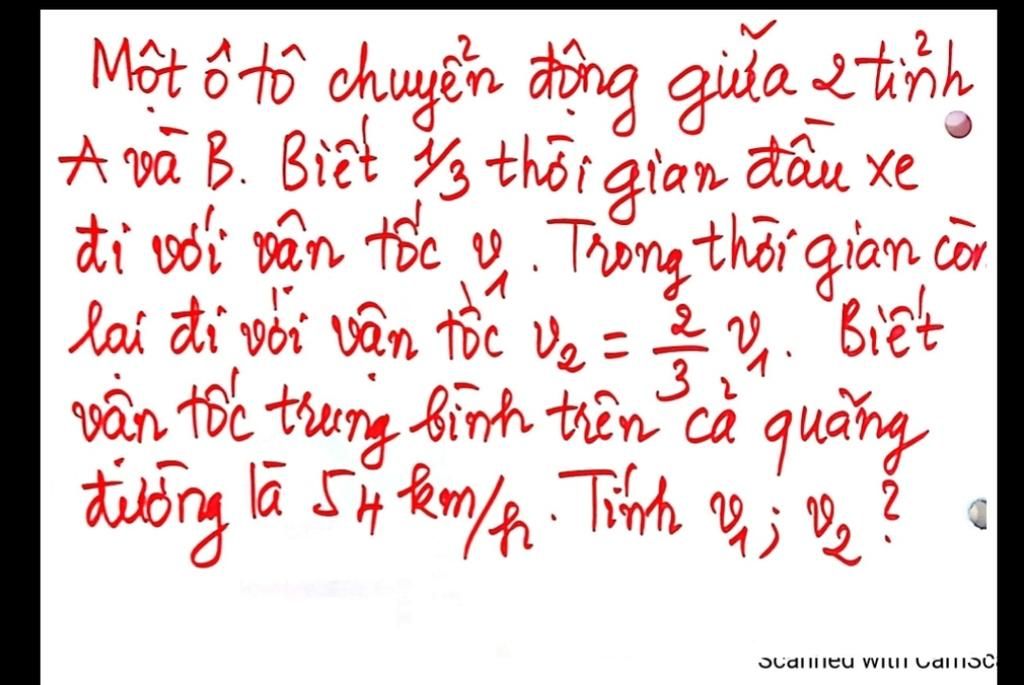 Một ô tô chuyển động giữa 2 tỉnh
A và B. Biết 1/3 thời gian đầu xe
đi với vận tốc v₁. Trong thời gian còn
lại đi với vận tốc v₂ = 2/3 v₁. Biết
vận tốc trung bình trên cả quãng
đường là 54 km/h. Tính v₁; v₂?
Scanned with CamSc